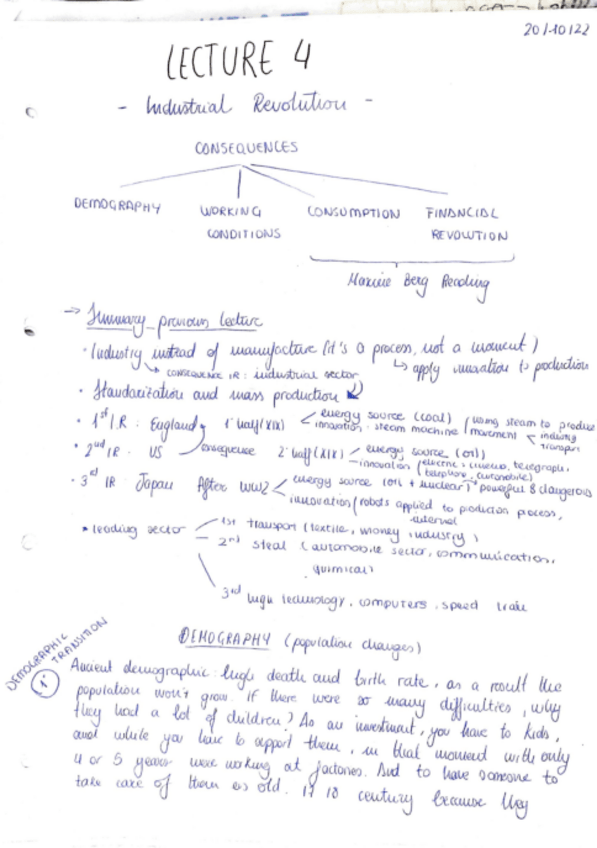 20/10/22
LECTURE 4
- Industrial Revolution -
CONSEQUENCES
DEMOGRAPHY WORKING CONSUMPTION FINANCIAL
CONDITIONS REVOLUTION
Maxine Berg Reading
→ Summary previous lecture
· Industry instead of manufacture (it's a process, not a moment)
CONSEQUENCE IR: industrial sector ↳ apply innovation to production
· Standarization and mass production
· 1st I.R: England 1 half (XIX) energy source (coal) (using steam to produce
innovation: steam machine movement industry
transport
· 2nd IR. US consequence 2 half (XIX) energy source (oil)
innovation (electric, cinema, telegraph,
telephone, automobile)
· 3rd IR Japan After WW2 energy source (oil + nuclear) powerful & dangerous
innovation (robots applied to production process,
internet
· leading sector 1st transport (textile, money industry)
2nd steal (automobile sector, communication,
quimical)
3rd high technology, computers, speed train
DEMOGRAPHY (population changes)
DEMOGRAPHIC
TRANSITION
1º
Ancient demographic: high death and birth rate, as a result the
population won't grow. If there were so many difficulties, why
they had a lot of children? As an investment, you have to kids,
and while you have to support them, in that moment with only
4 or 5 years were working at factories. And to have someone to
take care of them as old. 17 18 century because they